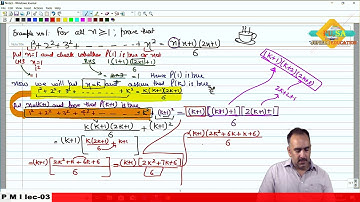 Example no1: For all n≥1, prove that
1²+2²+3²+ - - - - - + n² = n(n+1)(2n+1)
6
put n=1 and check whether P(1) is true or not
LHS n=1
RHS 1(1+1)(2×1+1)
6
Hence P(1) is true
now we will put n=k and assume that P(k) is true
1²+2²+3²+ - - - - + k² = k(k+1)(2k+1)
6
put n=k+1 and prove that P(k+1) is true
= (k+1)[(k+1)+1][2(k+1)+1]
6
k(k+1)(2k+1) + (k+1)²
6
= (k+1)[k(2k+1) + k+1]
6
(k+1)(2k²+6k+k+6)
6
= (k+1)[2k²+k+6k+6] = (k+1)[2k²+7k+6]
6 6
(k+1)(k+2)(2k+3)
6
2k+2+1
P M I lec-03